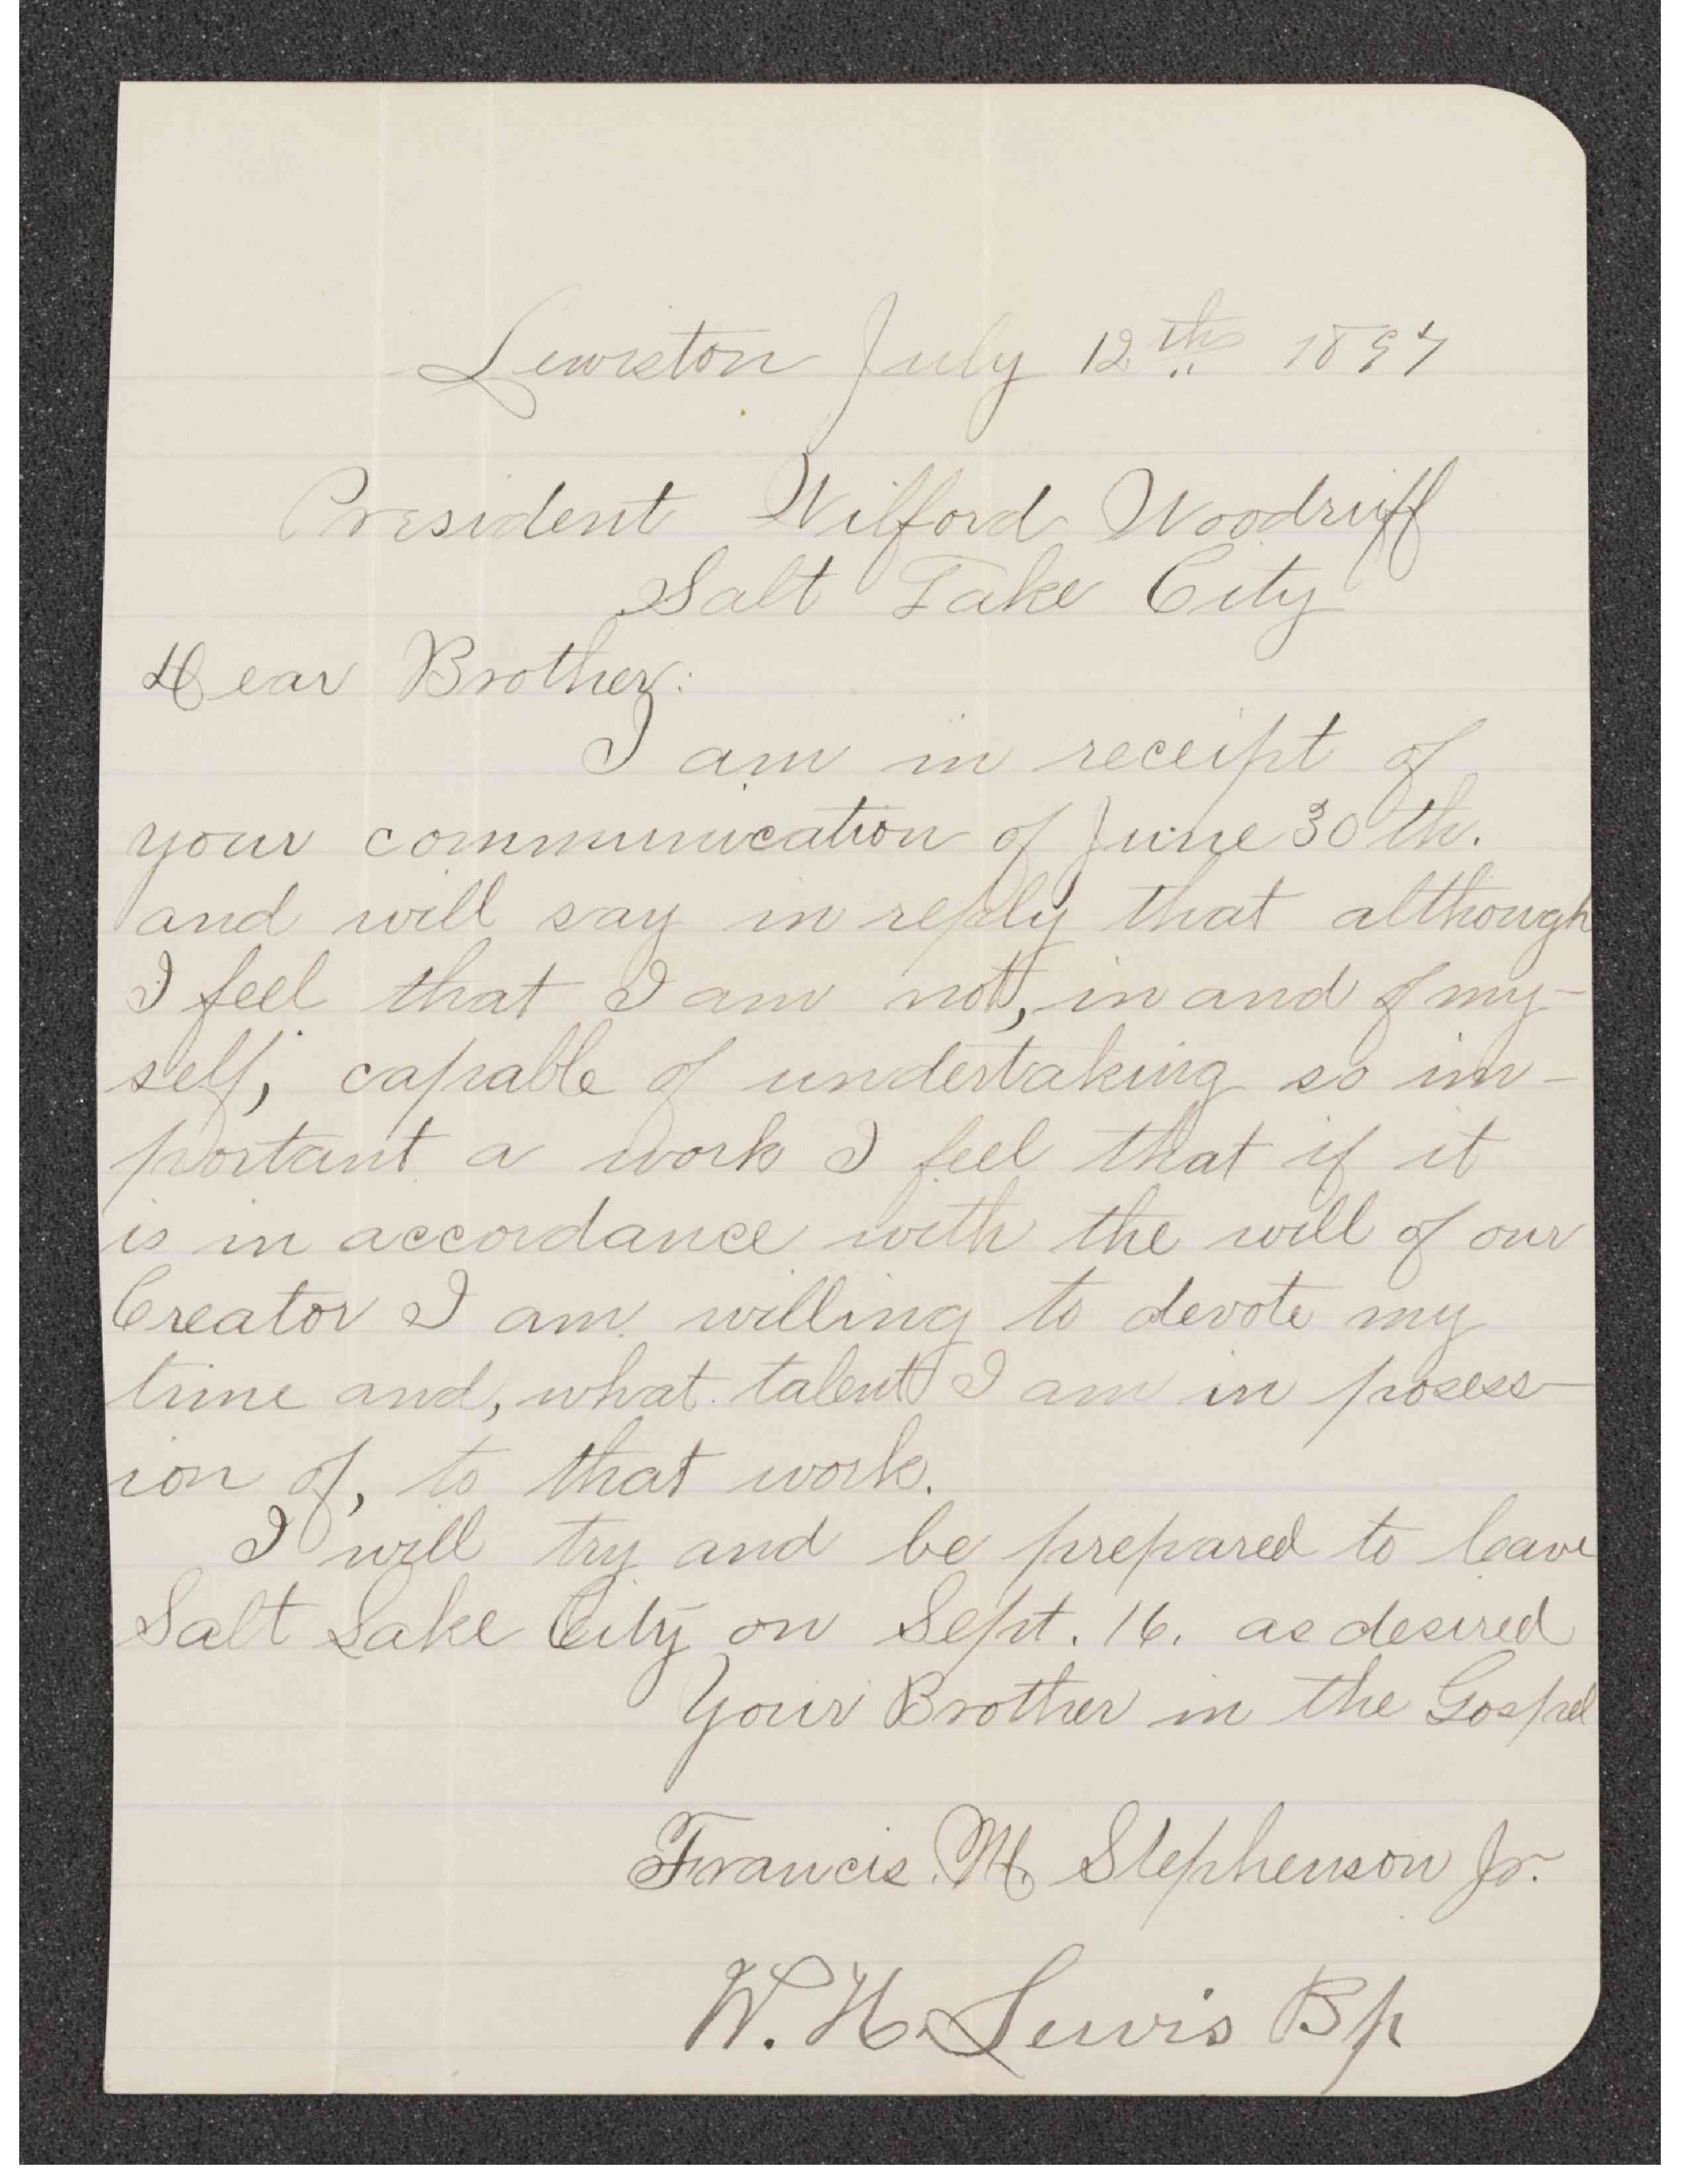 Lewiston July 12th 1897
President Wilford Woodruff
Salt Lake City
Dear Brother:
I am in receipt of
your communication of June 30th.
and will say in reply that although
I feel that I am not, in and of my-
self, capable of undertaking so im-
portant a work I feel that if it
is in accordance with the will of our
Creator I am willing to devote my
time and, what talent I am in posess-
ion of, to that work.
I will try and be prepared to leave
Salt Lake City on Sept. 16. as desired
Your Brother in the Gospel
Francis M. Stephenson Jr.
W. H. Lewis Bp